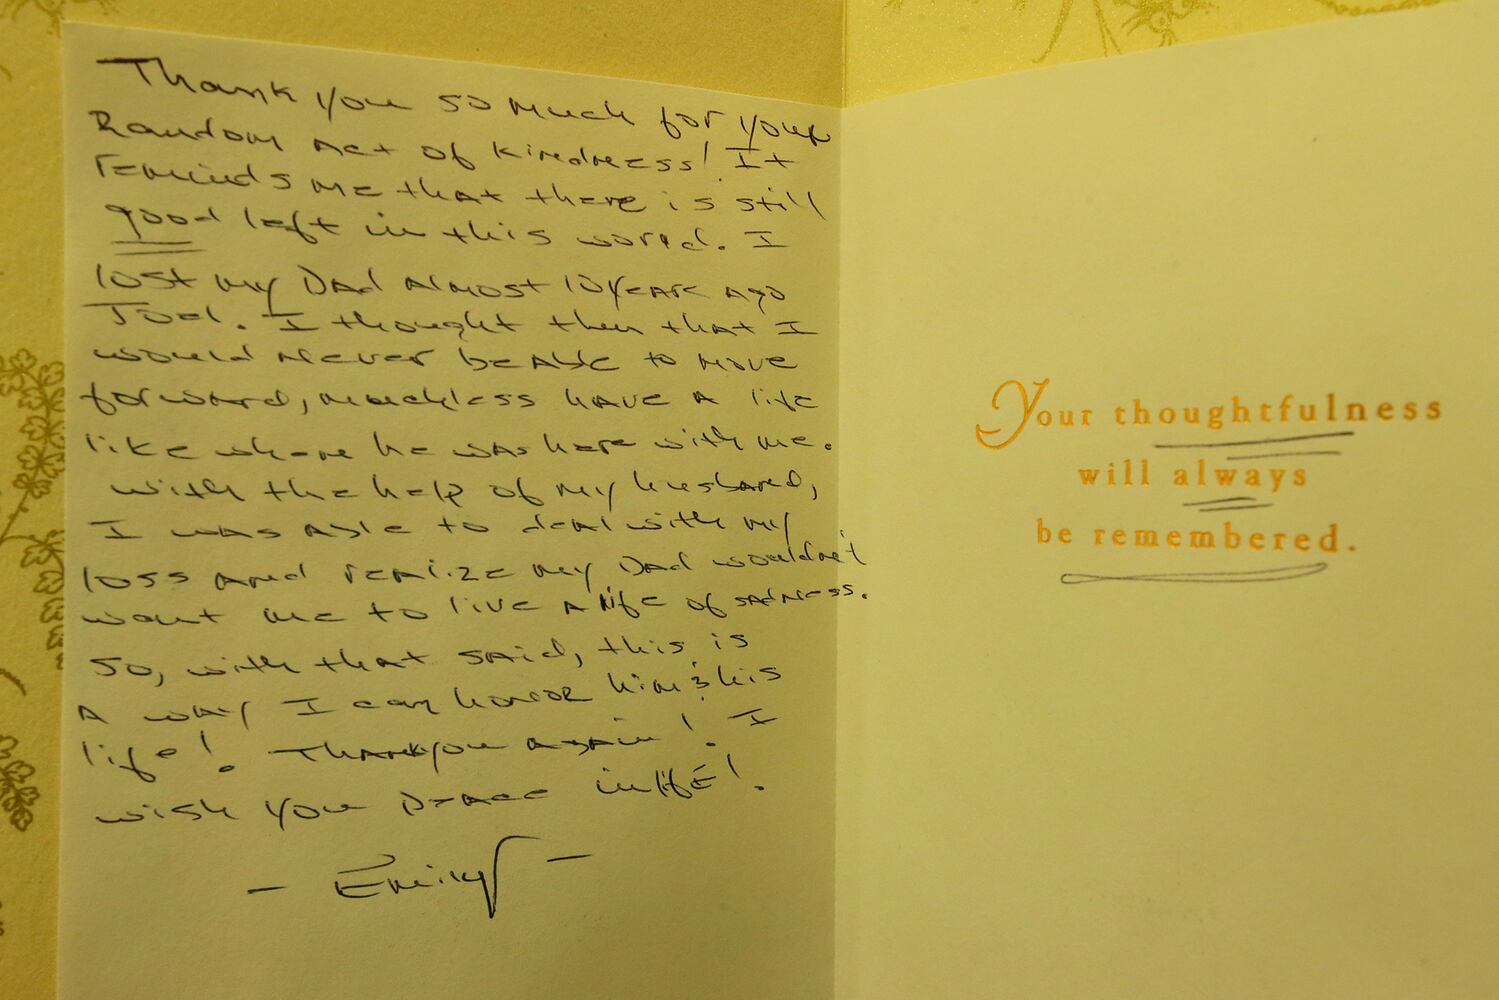 Thank you so much for your
Random Act of Kindness! It
reminds me that there is still
good left in this world. I
lost my Dad almost 10 years ago
I thought then that I
would never be able to move
forward, muchless have a life
like when he was here with me.
With the help of my husband,
I was able to deal with my
loss and realize my Dad wouldn't
want me to live a life of sadness.
So, with that said, this is
a way I can honor him & his
life! Thank you again! I
wish you peace in life!
- Emily -
Your thoughtfulness
will always
be remembered.